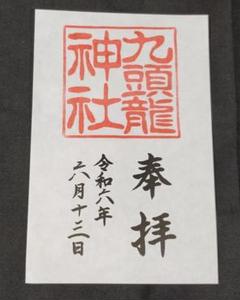 九頭龍
神社
奉拝
令和六年
六月十三日